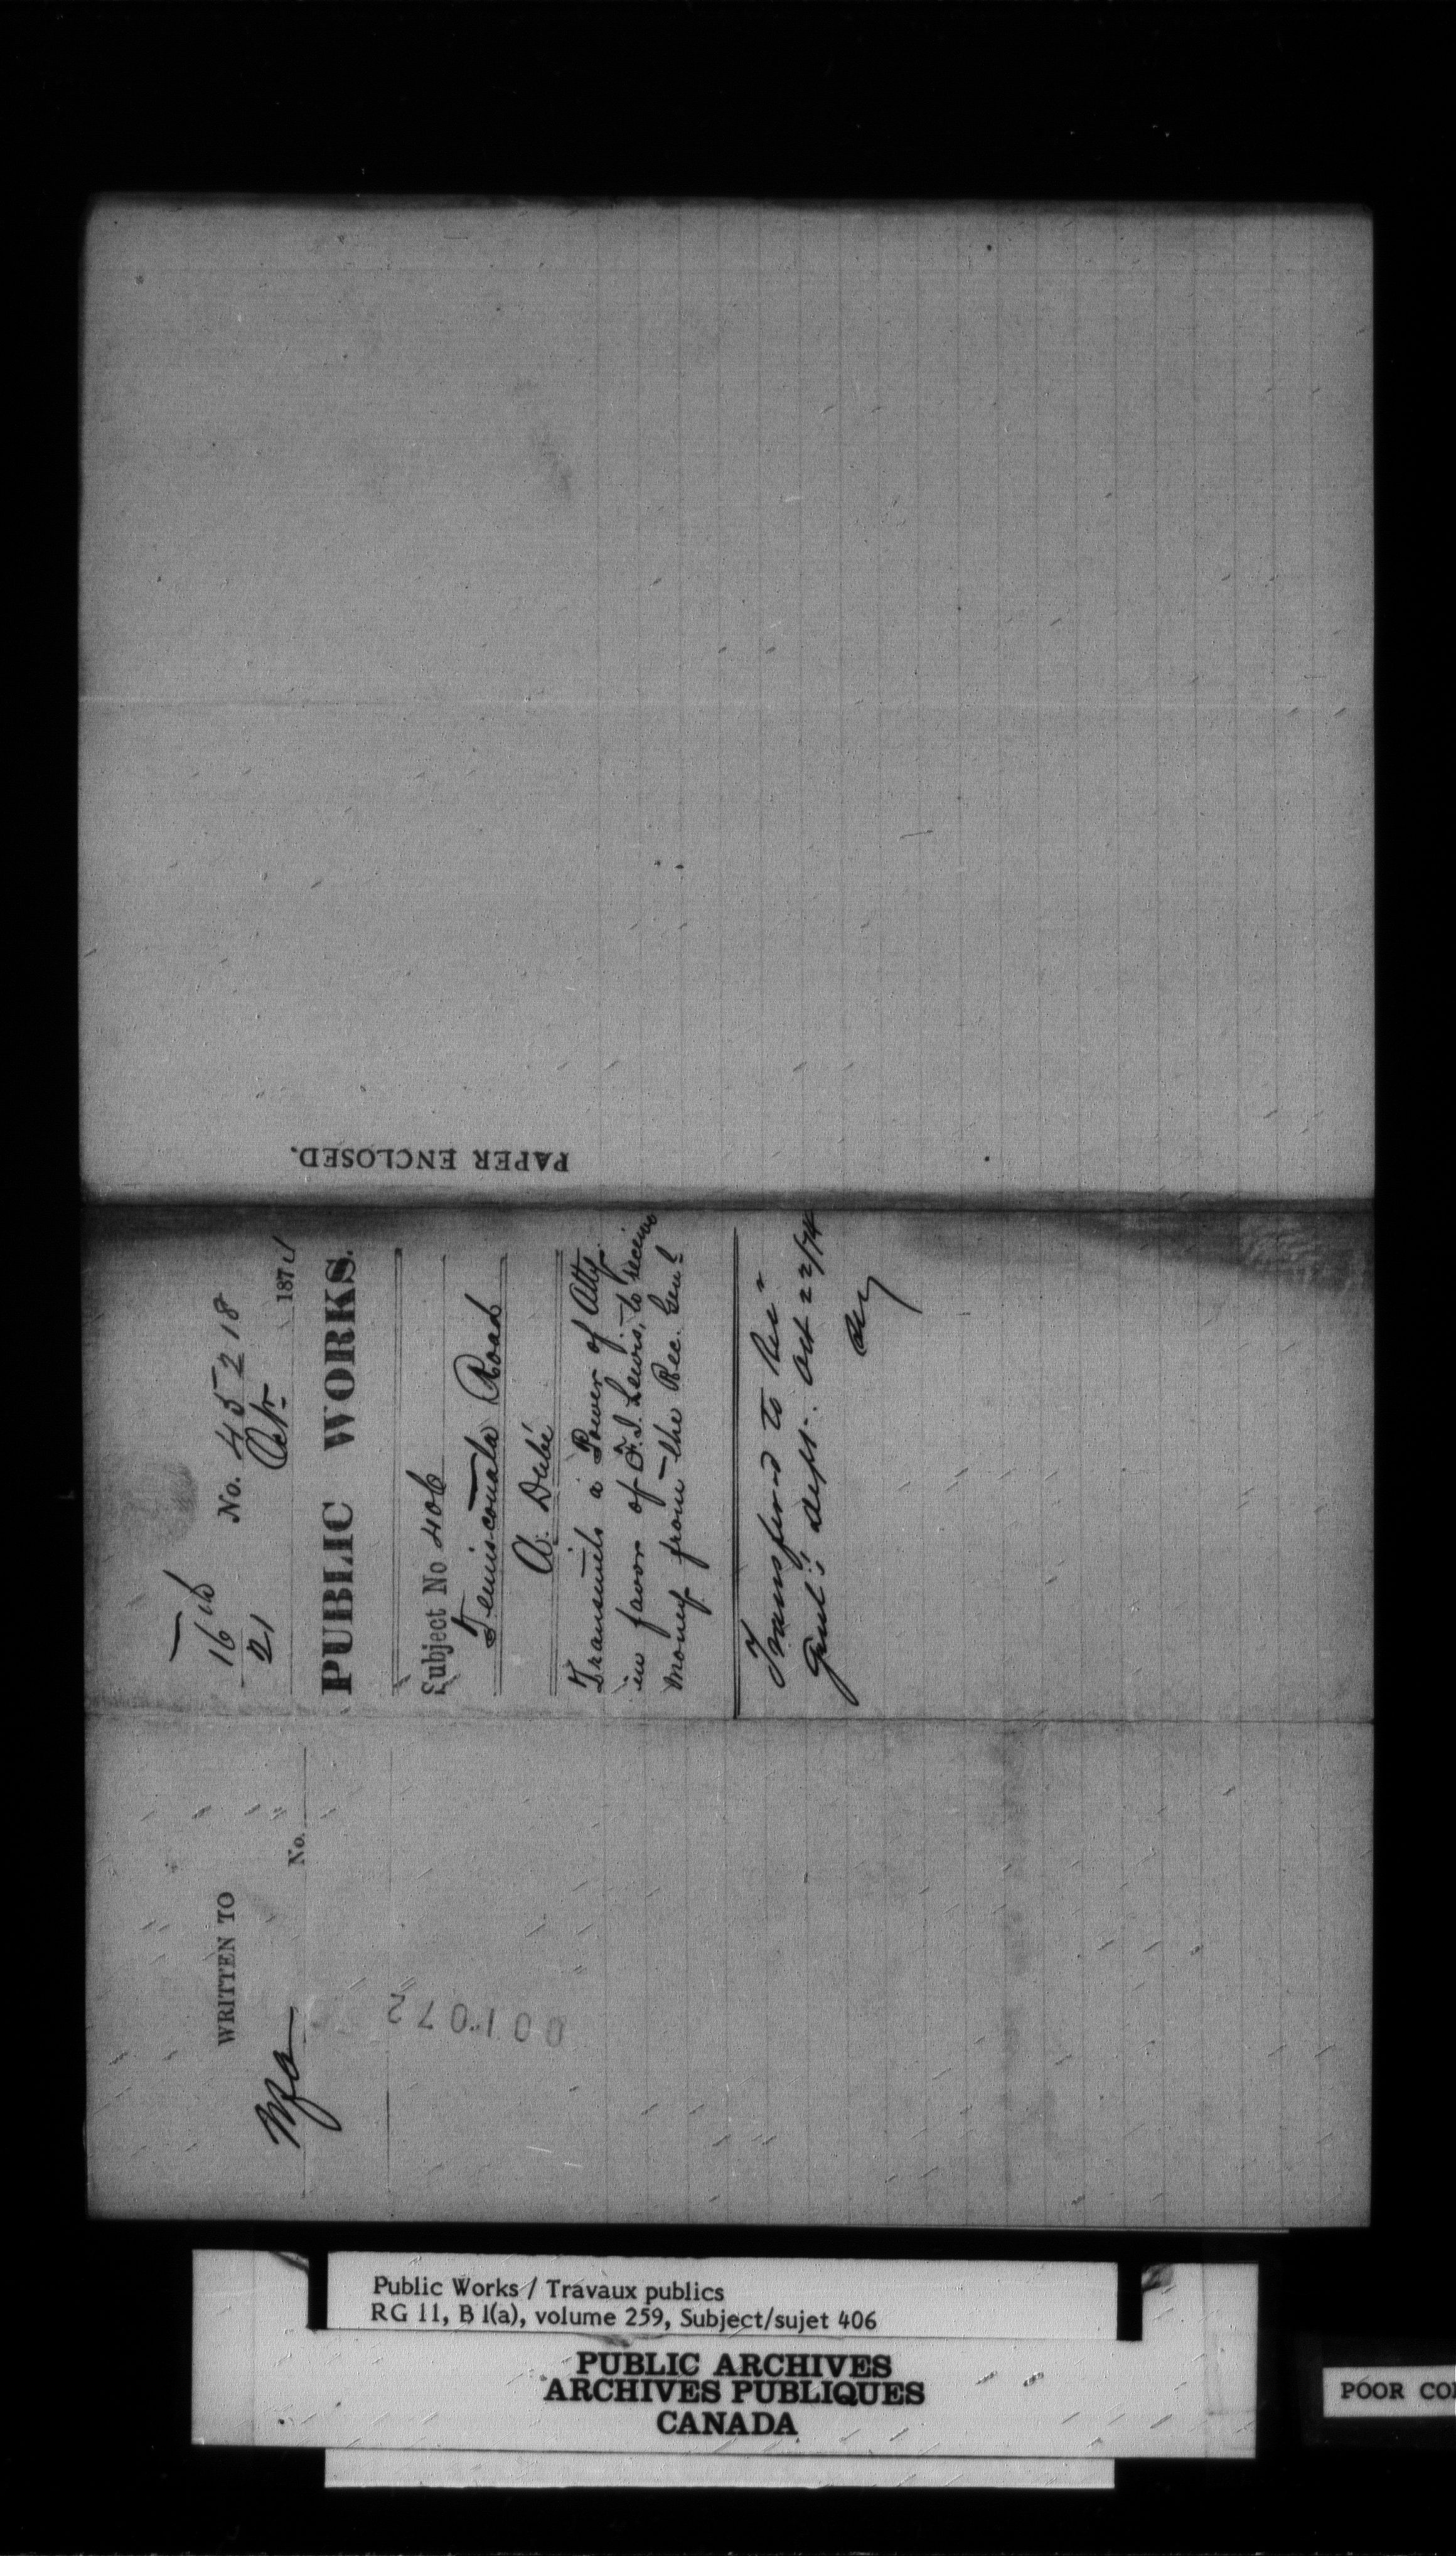 PAPER ENCLOSED.
16th No. 45218
21 Oct. 1874
PUBLIC WORKS.
Subject No 406
Temiscouata Road
A. Dubé
Transmits a Power of Atty.
in favor of F. I. Lewis, to receive
money from the Rec. Genl
Transferred to Rec r
Genl's Dept. Oct 22/74
WRITTEN TO
No.
001072
Public Works / Travaux publics
RG 11, B 1(a), volume 259, Subject/sujet 406
PUBLIC ARCHIVES
ARCHIVES PUBLIQUES
CANADA
POOR CO